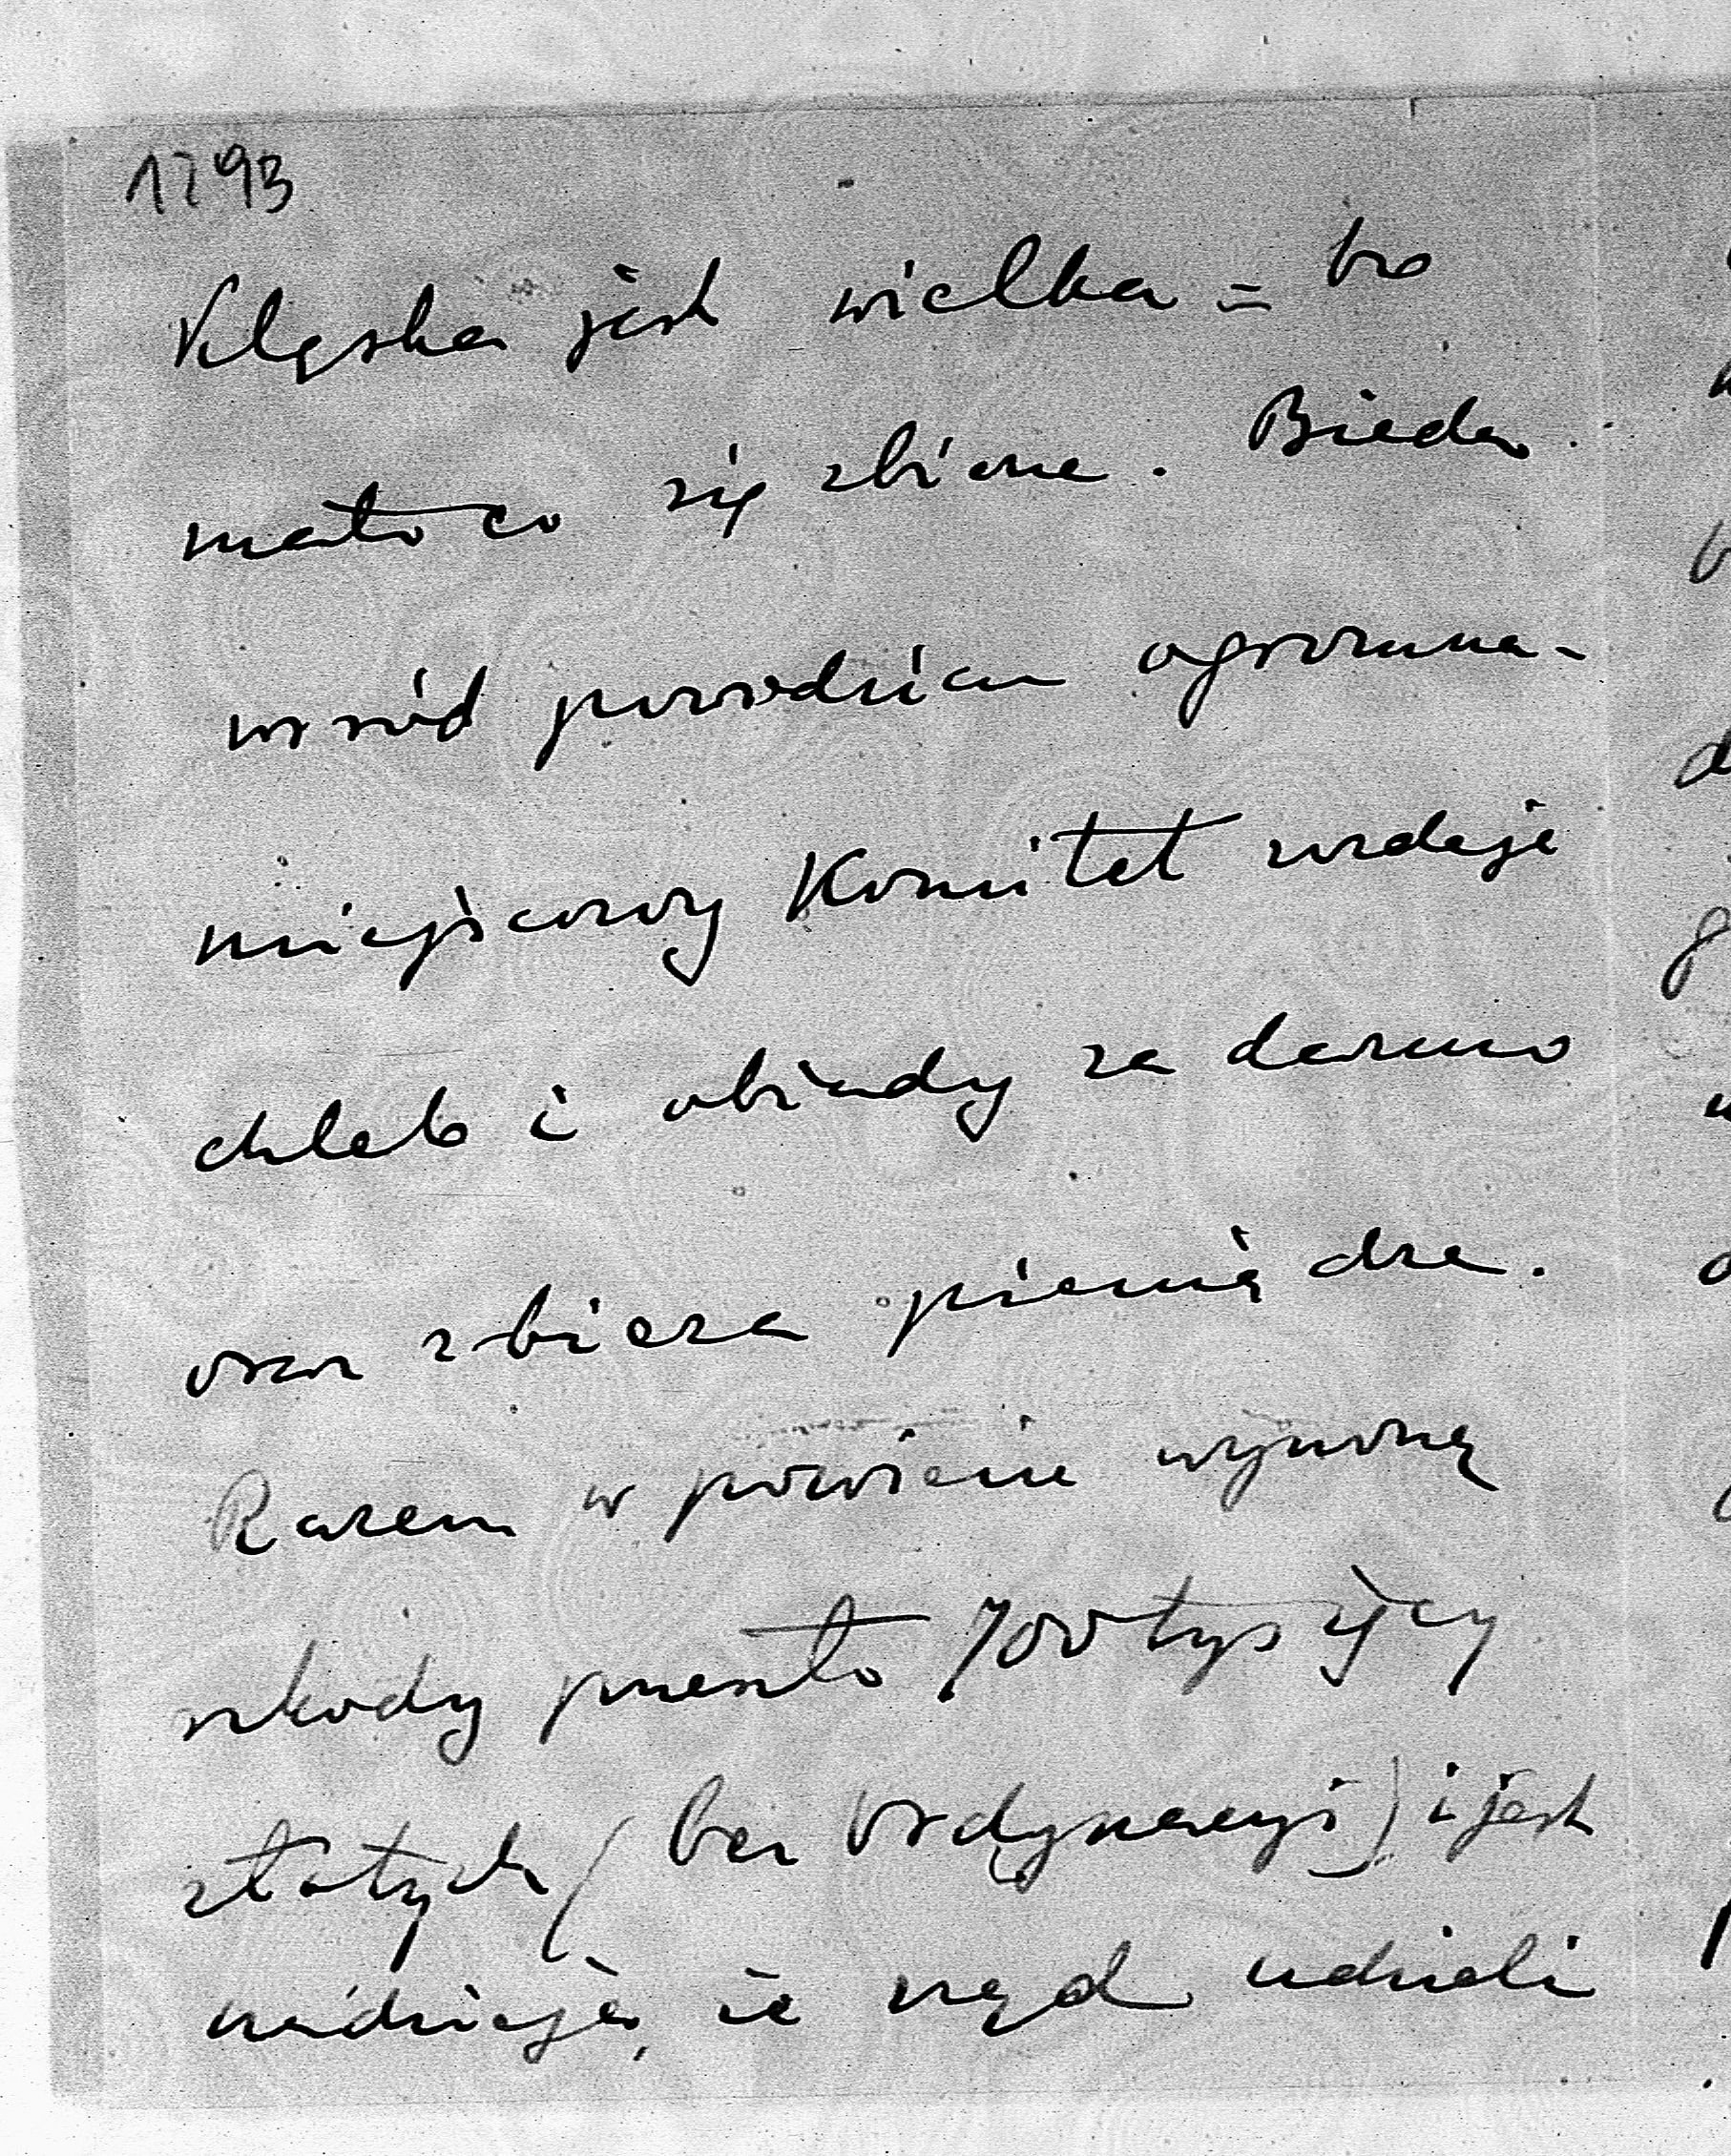 1793
Klęska jest wielka = bo
mało co się zbierze. Bieda
wśród powodzian ogromna -
miejscowy Komitet wydaje
chleb i obiady za darmo
oraz zbiera pieniądze.
Razem w powiecie wynoszą
szkody przeszło 700 tysięcy
złotych (bez Ordynacyi) i jest
nadzieja, że rząd udzieli